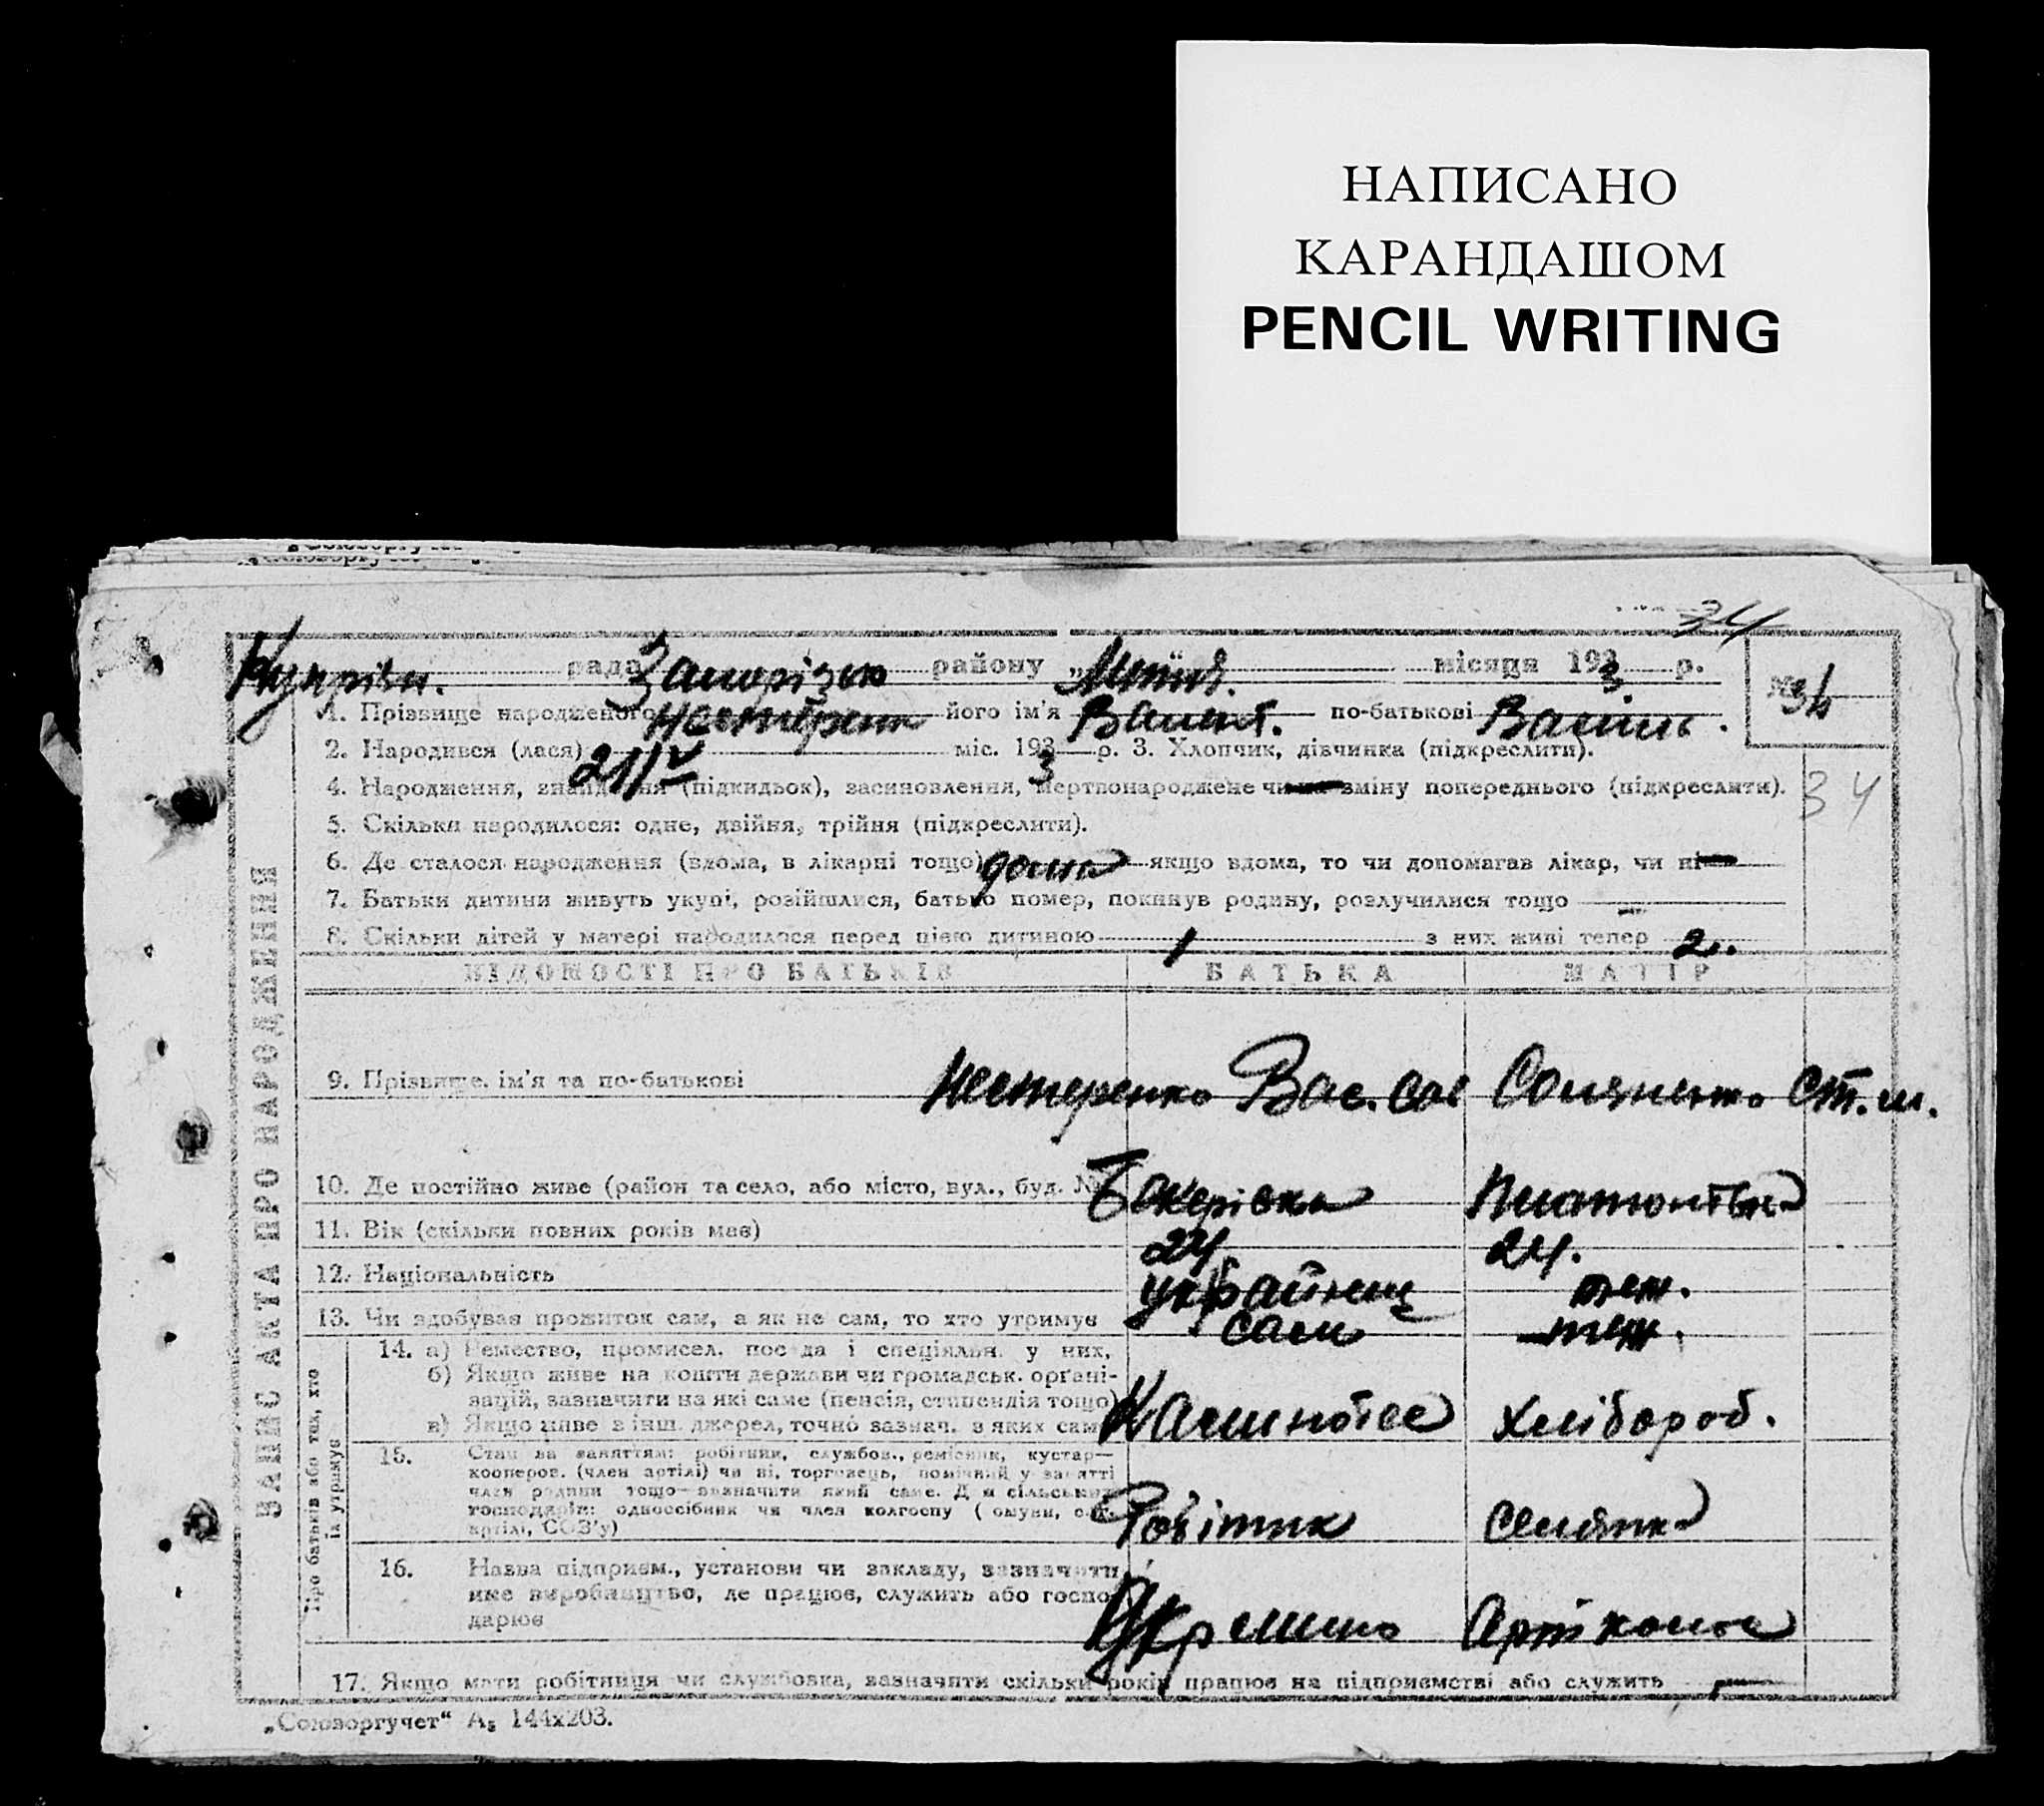 НАПИСАНО
КАРАНДАШОМ
PENCIL WRITING
34
рада району „ місяця 193 3 р.
№ 34
1. Прізвище народженого Нестеренк його ім'я Валент. по-батькові Василь.
2. Народився (лася) 21/IV міс. 193 3 р. 3. Хлопчик, дівчинка (підкреслити).
4. Народження, знайдення (підкидьок), засиновлення, мертвонароджене чи на зміну попереднього (підкреслити).
34
5. Скільки народилося: одне, двійня, трійня (підкреслити).
6. Де сталося народження (вдома, в лікарні тощо) дома якщо вдома, то чи допомагав лікар, чи ні
7. Батьки дитини живуть укупі, розійшлися, батько помер, покинув родину, розлучилися тощо
8. Скільки дітей у матері народилося перед цією дитиною 1 з них живі тепер 2.
ЗАПИС АКТА ПРО НАРОДЖЕННЯ
ВІДОМОСТІ ПРО БАТЬКІВ БАТЬКА МАТІР
9. Прізвище, ім'я та по-батькові Нестеренко Вас. Сав Ст. М.
10. Де постійно живе (район та село, або місто, вул., буд. №
11. Вік (скільки повних років має) 24 24.
12. Національність українец теж.
13. Чи здобував прожиток сам, а як не сам, то хто утримує сам теж.
Про батьків або тих, хто їх утримує
14. а) Ремество, промисел, посада і спеціяльн. у них,
б) Якщо живе на кошти держави чи громадськ. органі-
зацій, зазначити на які саме (пенсія, стипендія тощо)
в) Якщо живе з інш. джерел, точно зазнач. з яких сам Хлібороб.
15. Стан за заняттям: робітник, службов., ремісник, кустар—
кооперов. (член артілі) чи ні, торговець, помічний у занятті
член родини тощо—зазначити який саме. Для сільських
господарів: одноосібник чи член колгоспу ( омуни, с.-г.
артілі, СОЗ'у) Робітник Селянка
16. Назва підприєм., установи чи закладу, зазначити
яке виробництво, де працює, служить або госпо-
дарює
17. Якщо мати робітниця чи службовка, зазначити скільки років працює на підприємстві або служить
„Союзоргучет" А5 144x203.